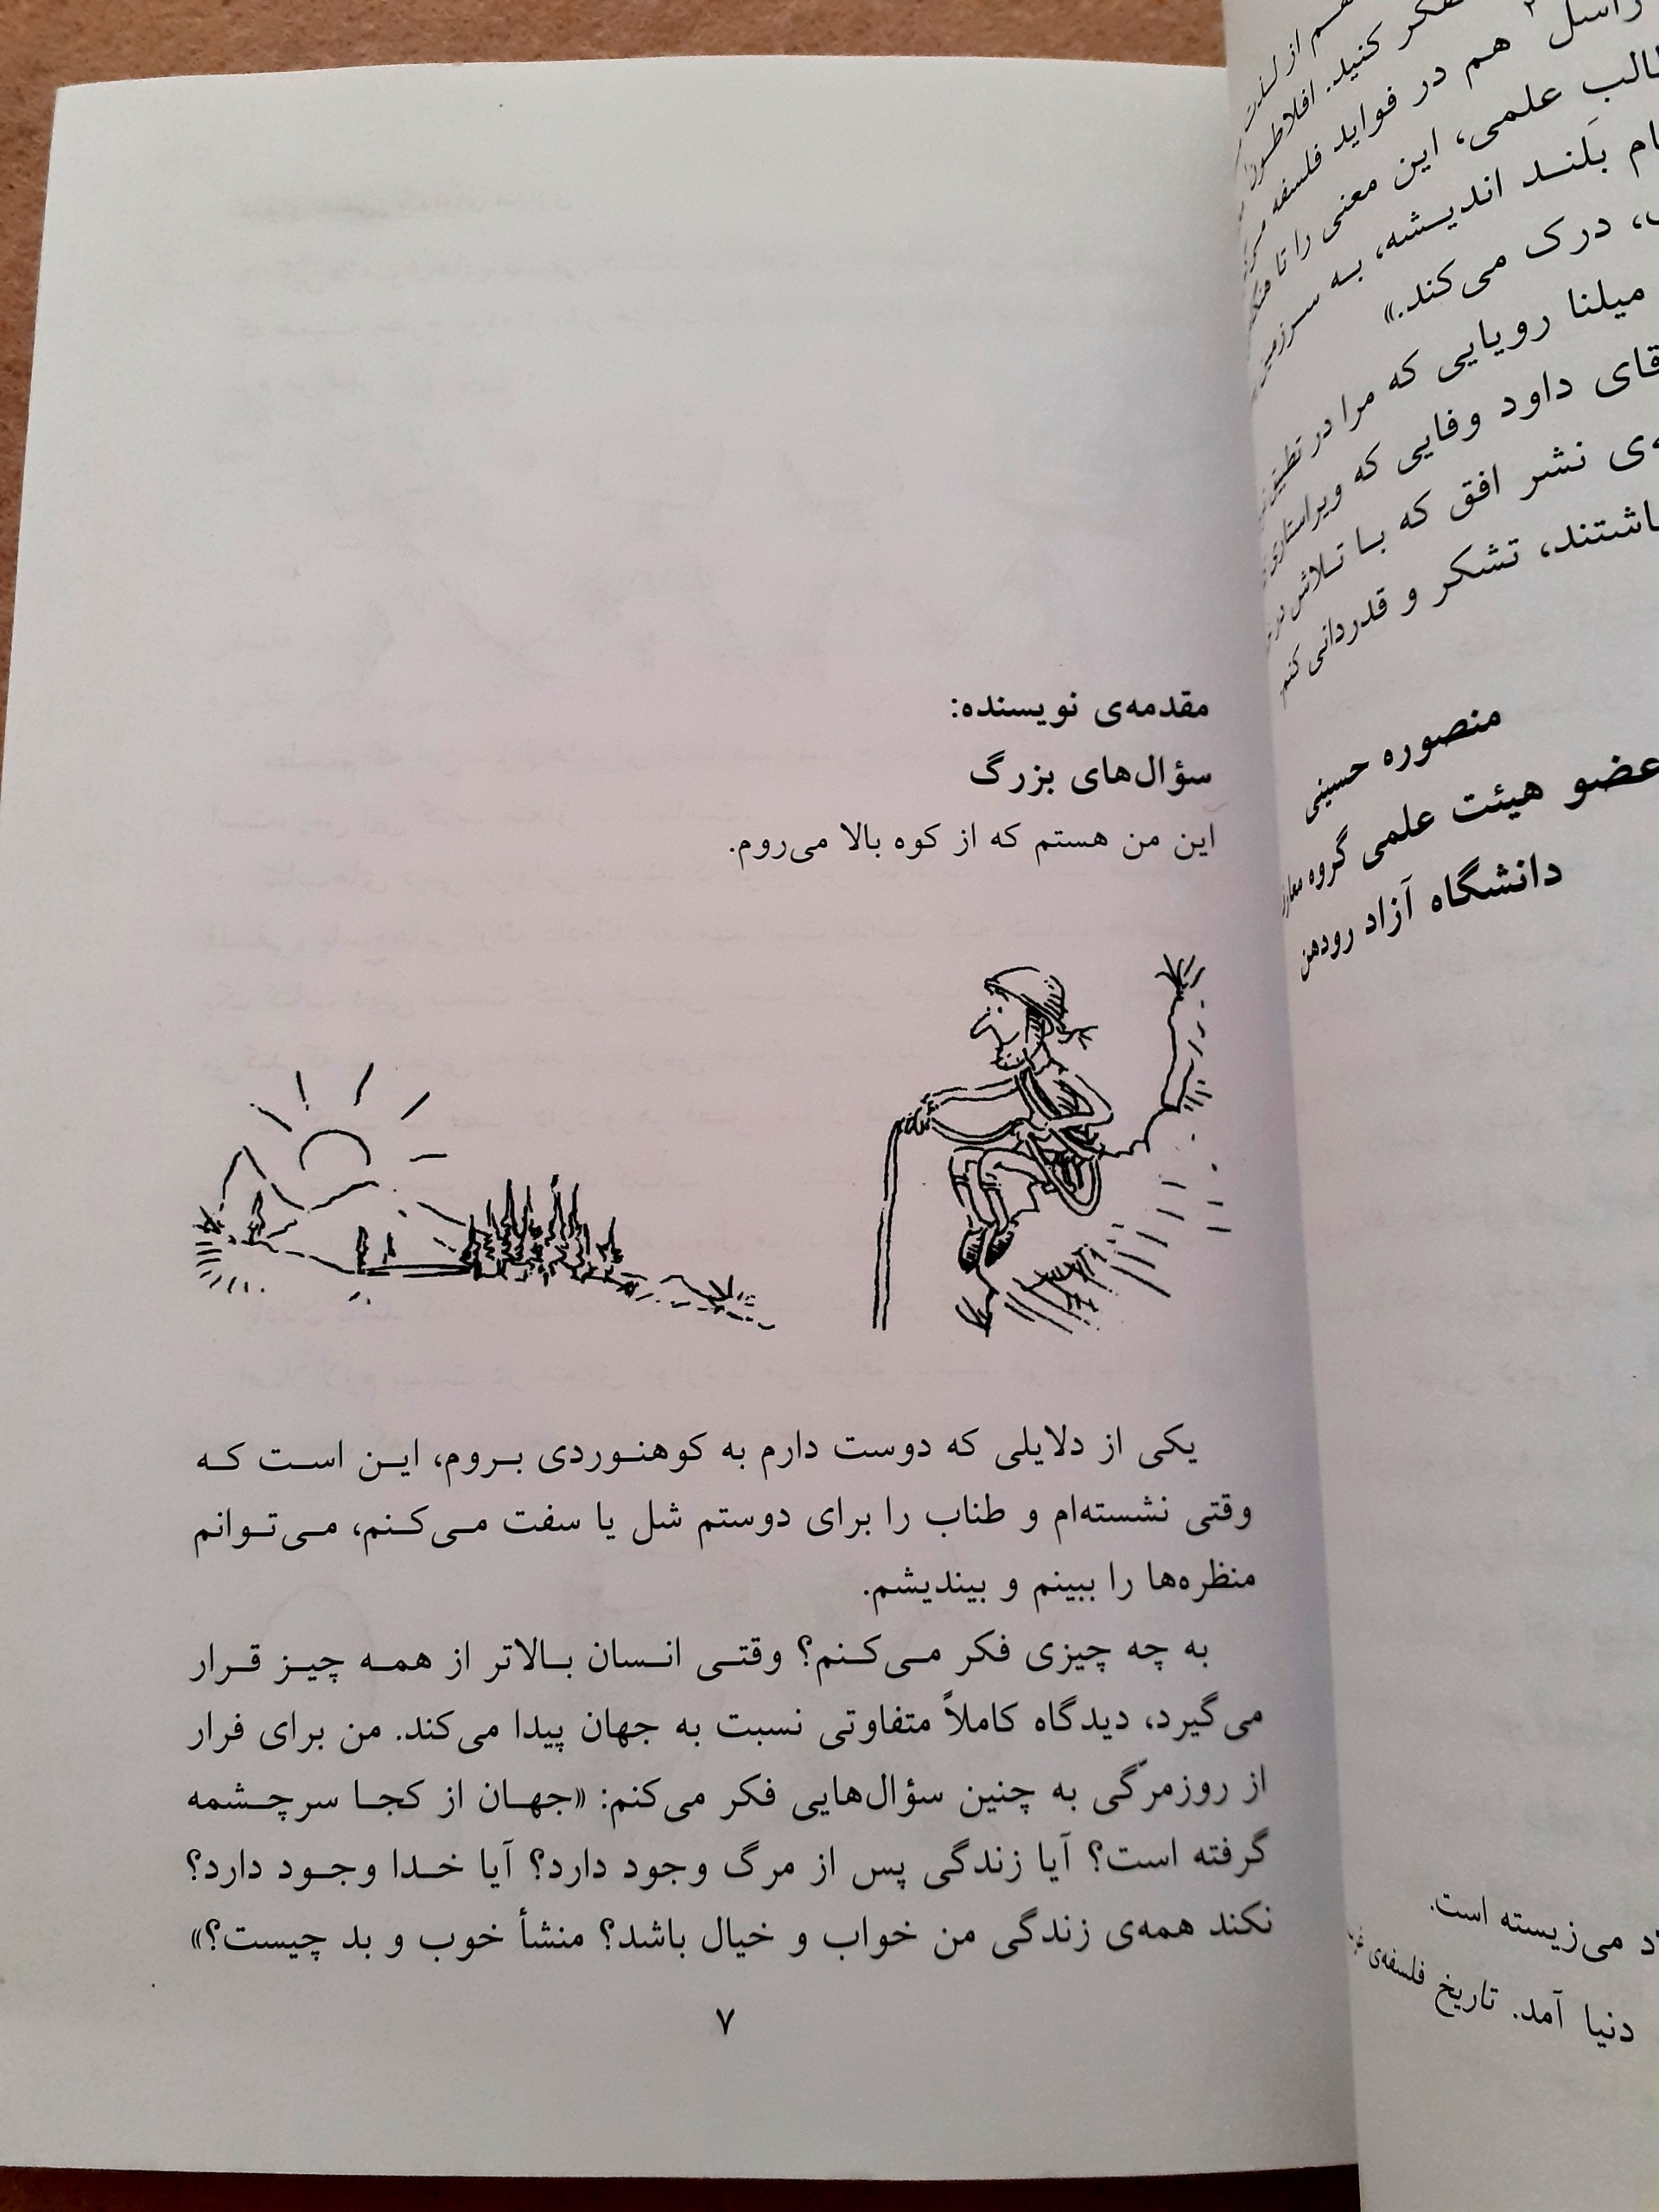 هم در فواید فلسفه
علمی، این معنی را تا
بلند اندیشه، به سرزمین
درک می‌کند.»
میلنا رویایی که مرا در
داود وفایی که ویراستاری
نشر افق که با تلاش
تشکر و قدردانی کنم
منصوره حسینی
عضو هیئت علمی گروه
دانشگاه آزاد رودهن
می‌زیسته است.
دنیا آمد. تاریخ فلسفه‌ی
مقدمه‌ی نویسنده:
سؤال‌های بزرگ
این من هستم که از کوه بالا می‌روم.
یکی از دلایلی که دوست دارم به کوهنوردی بروم، این است که
وقتی نشسته‌ام و طناب را برای دوستم شل یا سفت می‌کنم، می‌توانم
منظره‌ها را ببینم و بیندیشم.
به چه چیزی فکر می‌کنم؟ وقتی انسان بالاتر از همه چیز قرار
می‌گیرد، دیدگاه کاملاً متفاوتی نسبت به جهان پیدا می‌کند. من برای فرار
از روزمرّگی به چنین سؤال‌هایی فکر می‌کنم: «جهان از کجا سرچشمه
گرفته است؟ آیا زندگی پس از مرگ وجود دارد؟ آیا خدا وجود دارد؟
نکند همه‌ی زندگی من خواب و خیال باشد؟ منشأ خوب و بد چیست؟»
۷